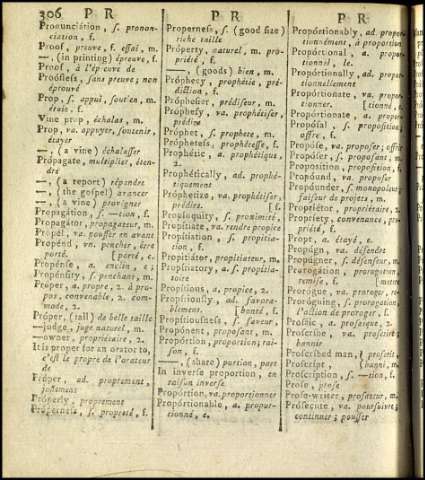 306 P R P R P R
Pronunciátion, ſ. pronon-
ciation, f.
Proof, preuve, f. eſſai, m.
—, (in printing) épreuve, f.
Proof, à l'épreuve de
Proófleſs, ſans preuve; non
éprouvé
Prop, ſ. appui, ſoutien, m.
étaie, f.
Vine prop, échalas, m.
Prop, va. appuyer, ſoutenir,
étayer
—, (a vine) échalaſſer
Própagate, multiplier, éten-
dre
—, (a report) répandre
—, (the goſpel) avancer
—, (a vine) provigner
Propagátion, ſ. —tion, f.
Propagátor, propagateur, m.
Propél, va. pouſſer en avant
Propénd, pencher, être
porté. [porté, e.
Propénſe, a. enclin, e;
Propénſity, ſ. penchant, m.
Próper, a. propre, 2. à pro-
pos, convenable, 2. com-
mode, 2.
Próper, (tall) de belle taille
—judge, juge naturel, m.
—owner, propriétaire, 2.
It is proper for an orator to,
c'eſt le propre de l'orateur
de
Próper, ad. proprement,
juſtement
Próperly, proprement
Próperneſs, ſ. propreté, f.
Properneſs, ſ. (good ſize)
riche taille
Próperty, naturel, m. pro-
priété, f.
—, (goods) bien, m.
Próphecy, prophétie, pré-
diction, f.
Próphefier, prédiſeur, m.
Próphefy, va. prophétiſer
prédire
Próphet, ſ. prophete, m.
Próphetefs, prophéteſſe, f.
Prophétic, a. prophétique,
2.
Prophétically, ad. prophé-
tiquement
Próphetize, va. prophétiſer,
prédire.
Propínquity, ſ. proximité,
Propítiate, va. rendre propice
Propitiátion, ſ. propitia-
tion, f.
Propitiátor, propitiateur, m.
Propítiatory, a. ſ. propitia-
toire
Propítious, a, propice, 2.
Propítiouſly, ad. favora-
blement. [bonté, f.
Propítiouſneſs, ſ. faveur,
Propónent, propoſant, m.
Propórtion, proportion; rai-
ſon, f.
—, (ſhare) portion, part
In inverſe proportion, en
raiſon inverſe.
Propórtion, va. proportionner
Propórtionable, a. propor-
tionné, e.
Propórtionably, ad. propor-
tionément, à proportion
Propórtional, a. proportion-
nel, le.
Propórtionally, ad. propor-
tionnellement
Propórtionate, va. propor-
tionner. [tionné,
Propórtionate, a. propor-
Propóſal, ſ. propoſition,
offre, f.
Propóſe, va. propoſer; offrir
Propóſer, ſ. propoſant, m.
Propoſition, propoſition, f.
Propóund, va. propoſer
Propóunder, ſ. monopoleur;
faiſeur de projets, m.
Propríetor, propriétaire, 2.
Propríety, convenance, pro-
priété, f.
Propt, a. étayé, e.
Propúgn, va. défendre
Propúgner, ſ. défenſeur, m.
Prorogátion, prorogation,
remiſe, f.
Prorógue, va. proroger, re-
Proróguing, ſ. prorogation,
l'action de proroger, f.
Proſáic, a. proſaique, 2.
Proſcríbe, va. proſcrire;
bannir
Proſcríbed man, { proſcrit,
Próſcript, { banni, m.
Proſcríption, ſ. —tion, f.
Proſe, proſe
Proſe-writer, proſateur, m.
Próſecute, va. pourſuivre;
continuer; pouſſer